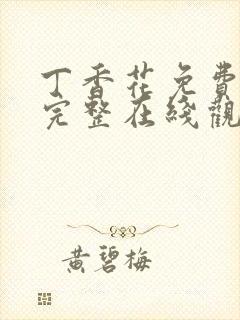 丁香花免費
完整在綫觀
黄碧梅